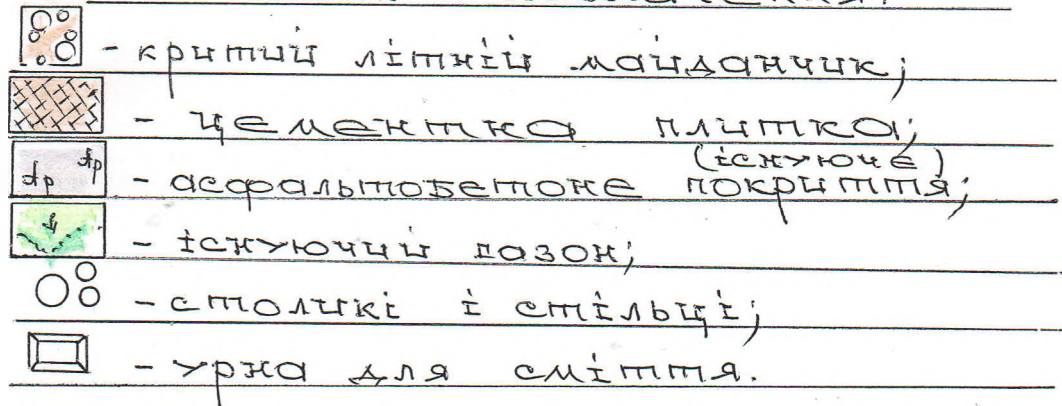 - критий літній майданчик;
- цементна плитка;
(існуюче)
Ар Ар - асфальтобетоне покриття;
- існуючий газон;
- столикі і стільці;
- урна для сміття.